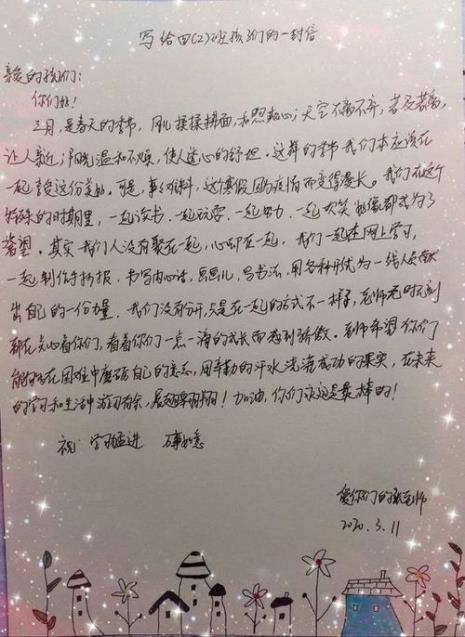 写给四(2)班孩子们的一封信
亲爱的孩子们:
你们好!
三月,是春天的季节,风儿柔柔拂面,和煦暖心;天空不离不弃,若及若离,
让人亲近;阳光温和不燥,使人遂心的舒坦。这样的季节我们本应该在
一起享受这份美好。可是,事与愿料,这个寒假因为疫情而变得漫长。我们在这个
特殊的时期里,一起读书、一起玩耍、一起努力、一起欢笑 都成为了
奢望。其实我们人没有聚在一起,心却在一起,我们一起在网上学习,
一起制作手抄报,书写内心话,画画儿,写书法,用各种形式为一线人员献
出自己的一份力量,我们没有分开,只是在一起的方式不一样了,老师无时无刻
都在关心着你们,看着你们一点一滴的成长而感到骄傲。老师希望你们
能够在困难中磨砺自己的意志,用辛勤的汗水浇灌成功的果实,在未来
的学习和生活中游刃有余,展翅翱翔!加油,你们永远是最棒的!
祝:学习猛进 万事如意
爱你们的 老师
2020.3.11